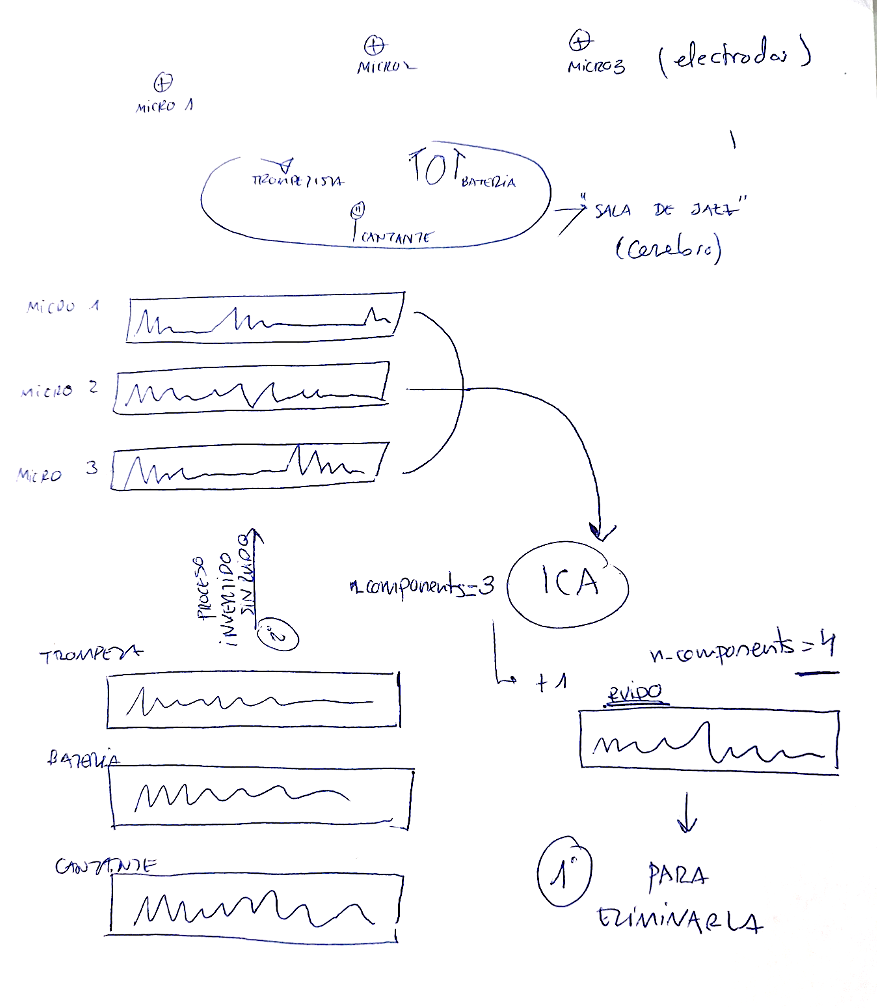 MICRO 1
MICRO 2
MICRO 3 (electrodos)
TROMPETISTA
BATERIA
CANTANTE
"SALA DE JAZZ"
(Cerebro)
MICRO 1
MICRO 2
MICRO 3
PROCESO
INVERTIDO
SIN RUIDO
2º
n_components=3
ICA
+1
n_components=4
RUIDO
TROMPETA
BATERIA
CANTANTE
1º
PARA
ELIMINARLA